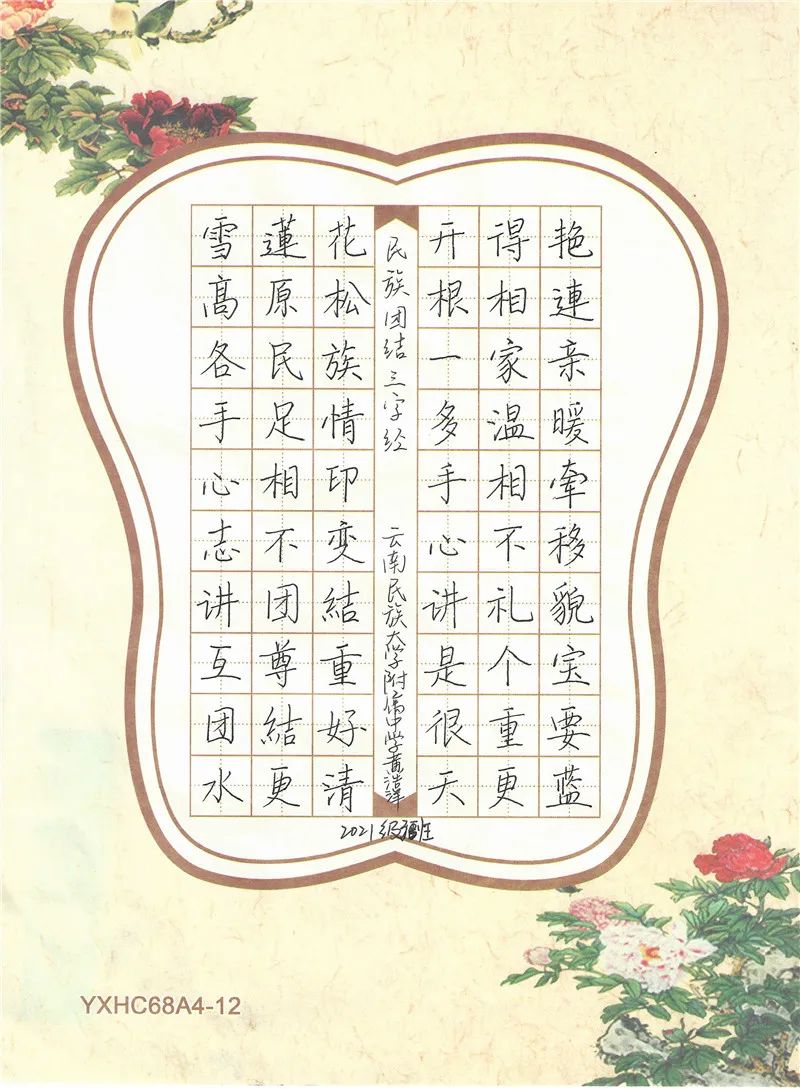 雪蓮花 开得艳
髙原松 根相連
各民族 一家亲
手足情 多温暖
心相印 手相牽
志不变 心不移
讲团結 讲礼貌
互尊重 是个宝
团結好 很重要
水更清 天更蓝
民族团结三字经
云南民族大学附属中学黄
2021级班
YXHC68A4-12